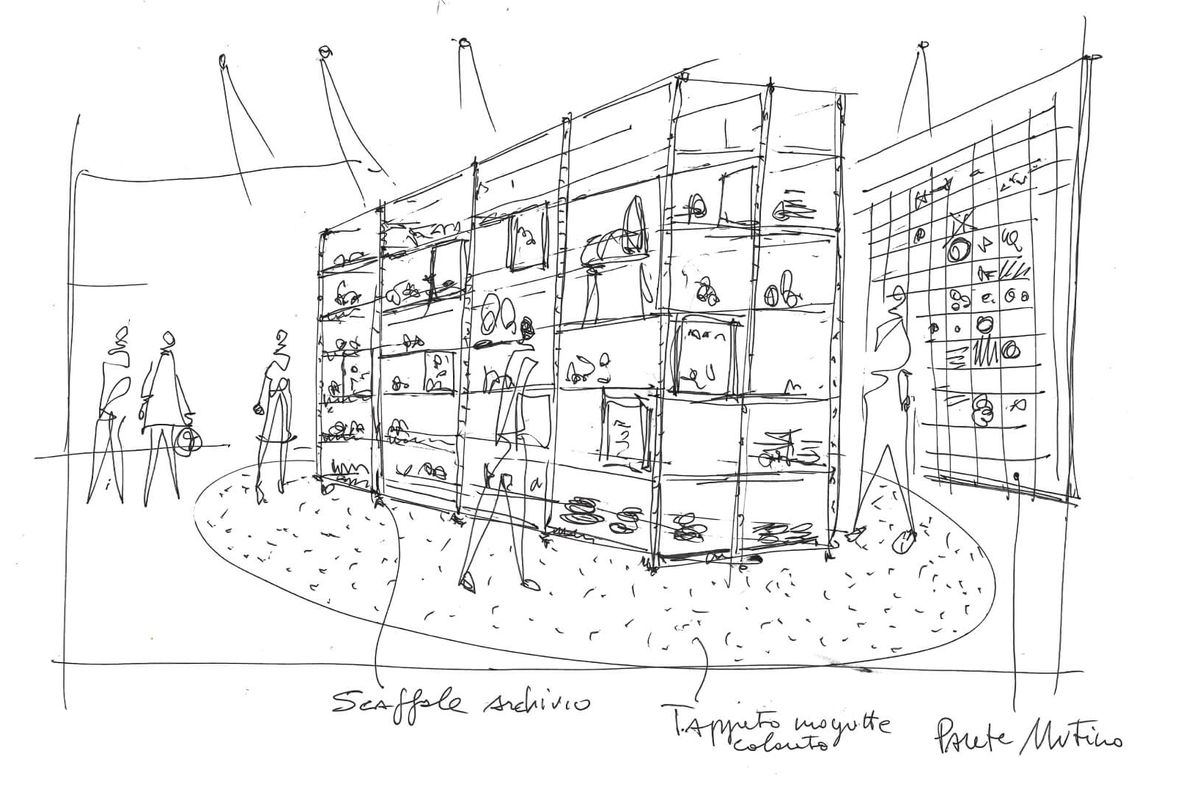 Scaffale archivio
Tappeto moquette
colorato
Parete Mutina